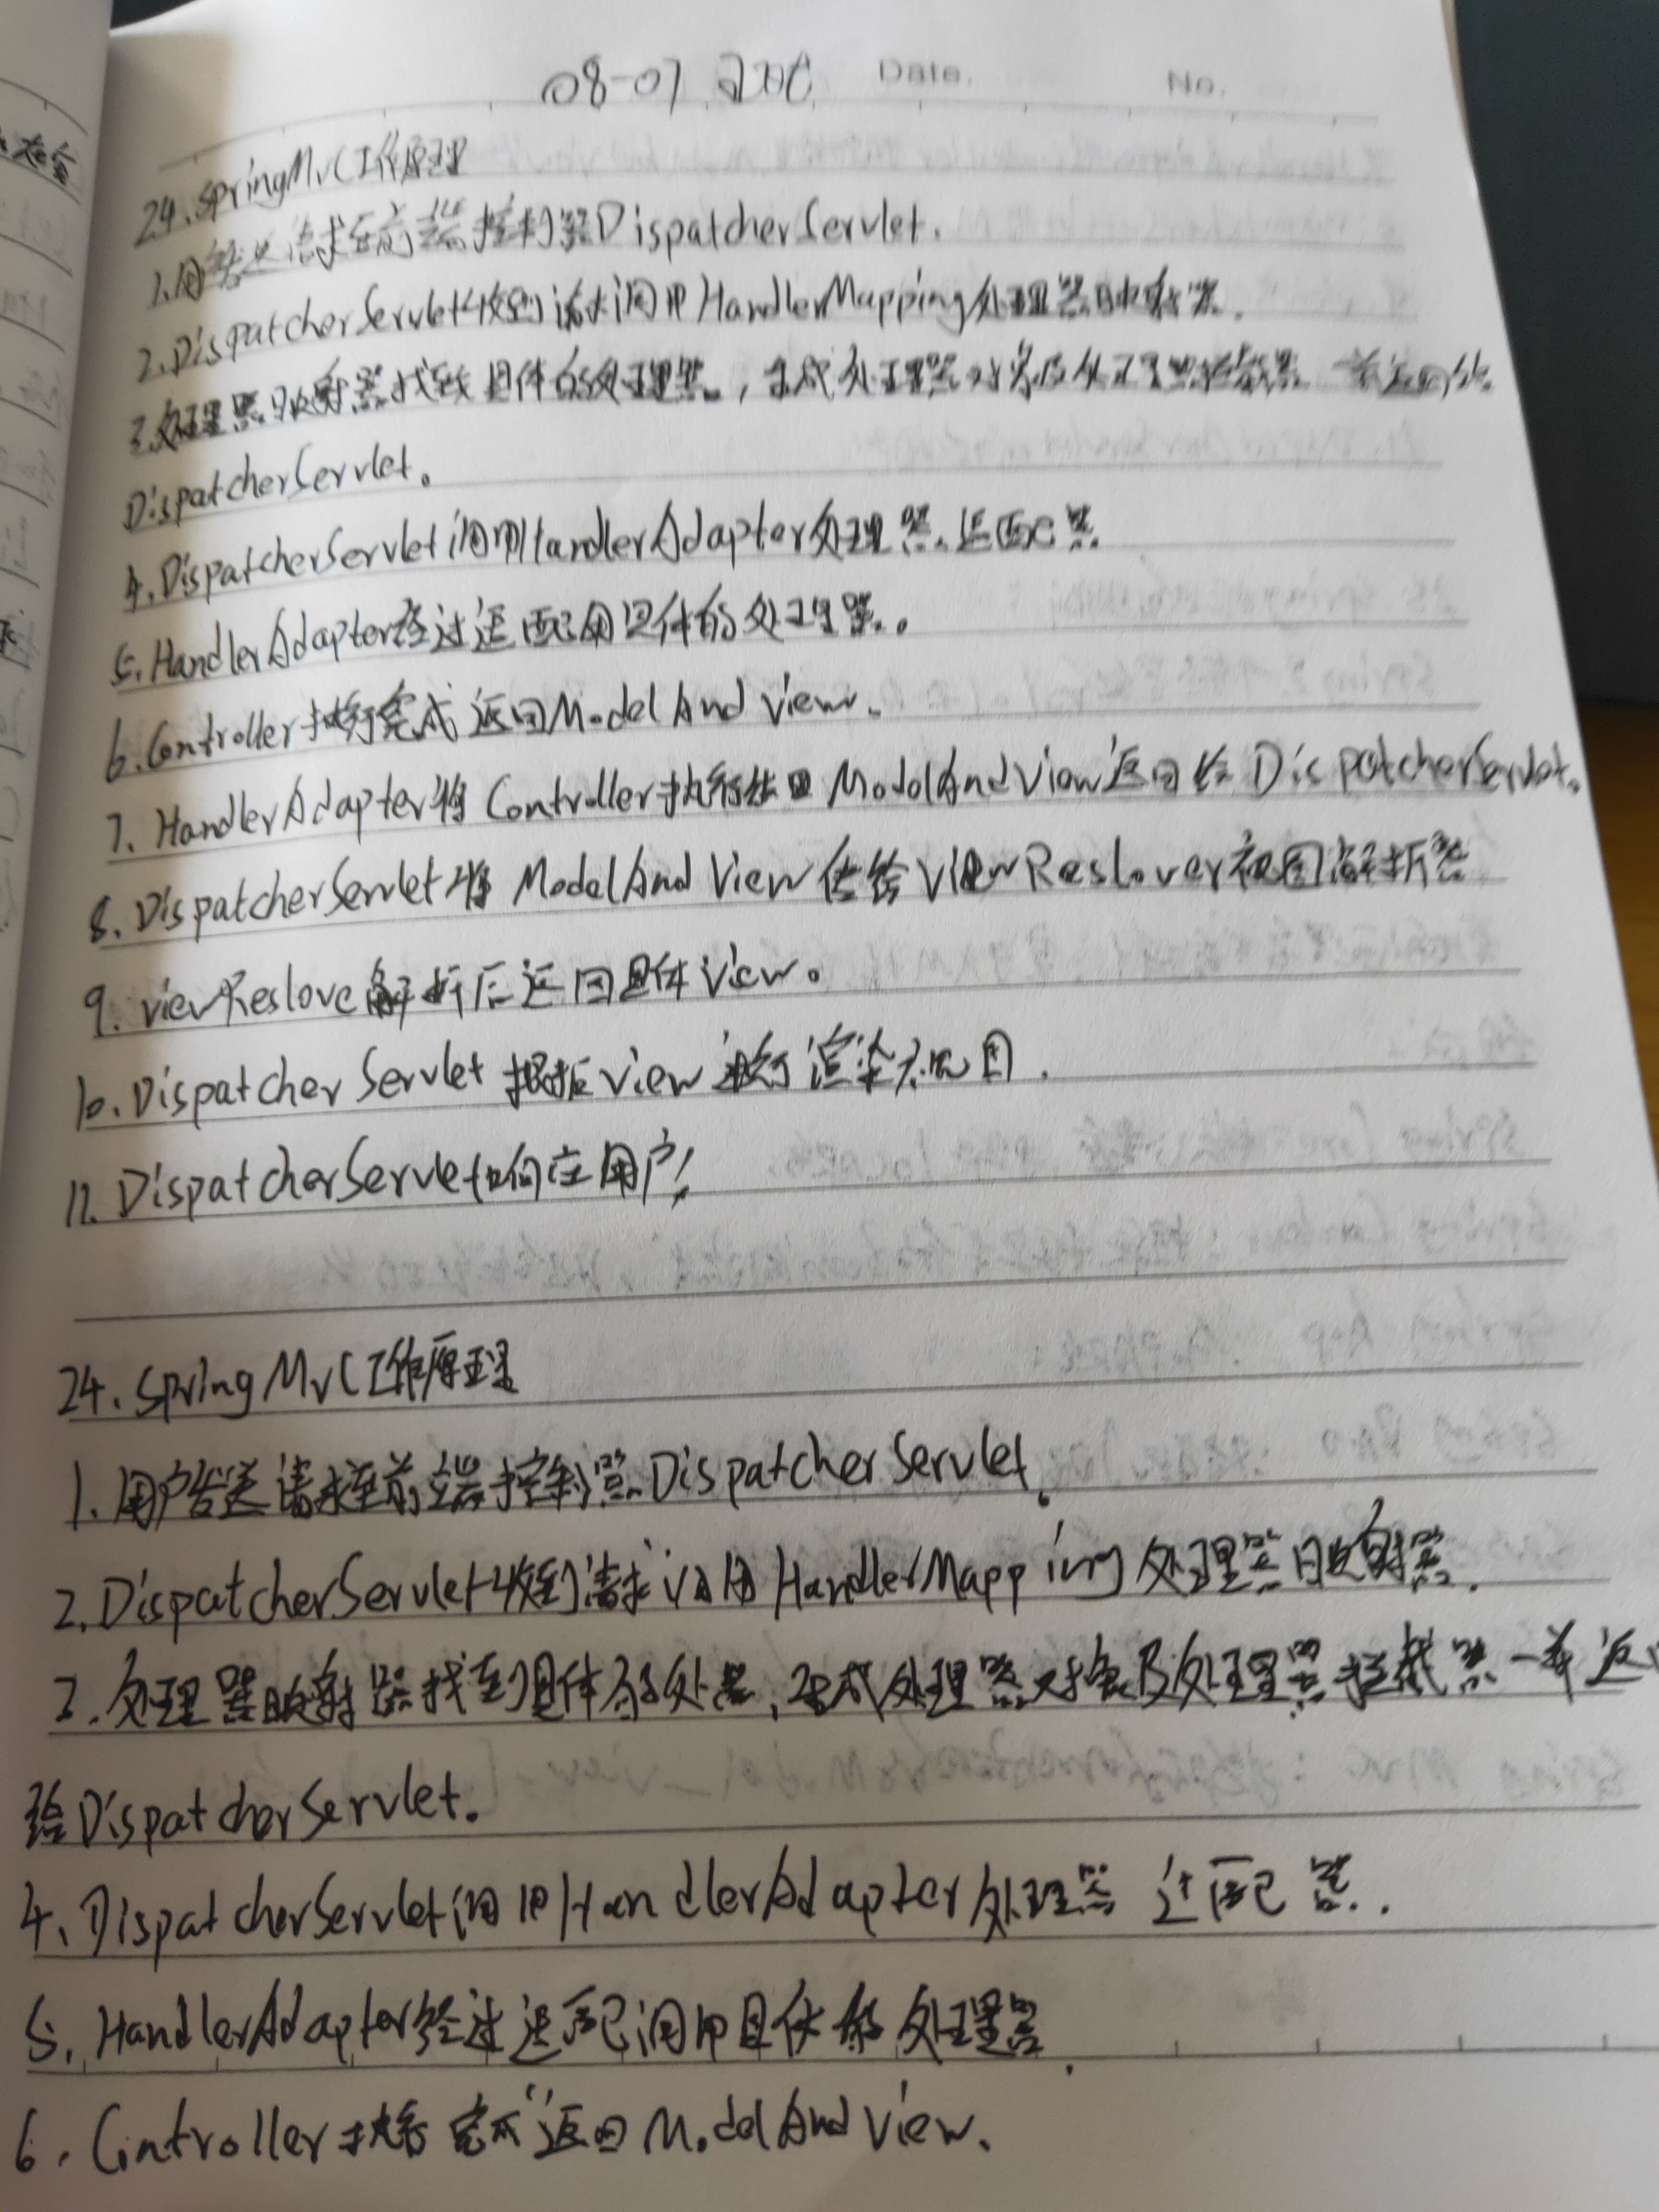 08-07 Date. No.
24. SpringMVC工作原理
1.用户发送请求至前端控制器DispatcherServlet.
2.DispatcherServlet收到请求调用HandlerMapping处理器映射器.
3.处理器映射器找到具体的处理器,生成处理器对象及处理器拦截器一并返回给
DispatcherServlet。
4.DispatcherServlet调用HandlerAdapter处理器适配器
5.HandlerAdapter经过适配用具体的处理器。
6.Controller执行完成返回ModelAndView.
7. HandlerAdapter将Controller执行结果ModelAndView返回给DispatcherServlet.
8. DispatcherServlet将ModelAndView传给ViewReslover视图解析器
9. viewReslove解析后返回具体View。
10.DispatcherServlet根据View进行渲染视图.
11.DispatcherServlet响应用户!
24. SpringMVC工作原理
1.用户发送请求至前端控制器DispatcherServlet.
2.DispatcherServlet收到请求调用HandlerMapping处理器映射器.
3.处理器映射器找到具体的处器,生成处理器对象及处理器拦截器一并返
给DispatcherServlet.
4.DispatcherServlet调用HandlerAdapter处理器适配器.
5.HandlerAdapter经过适配调用具体的处理器.
6.Controller执行完成返回ModelAndView.